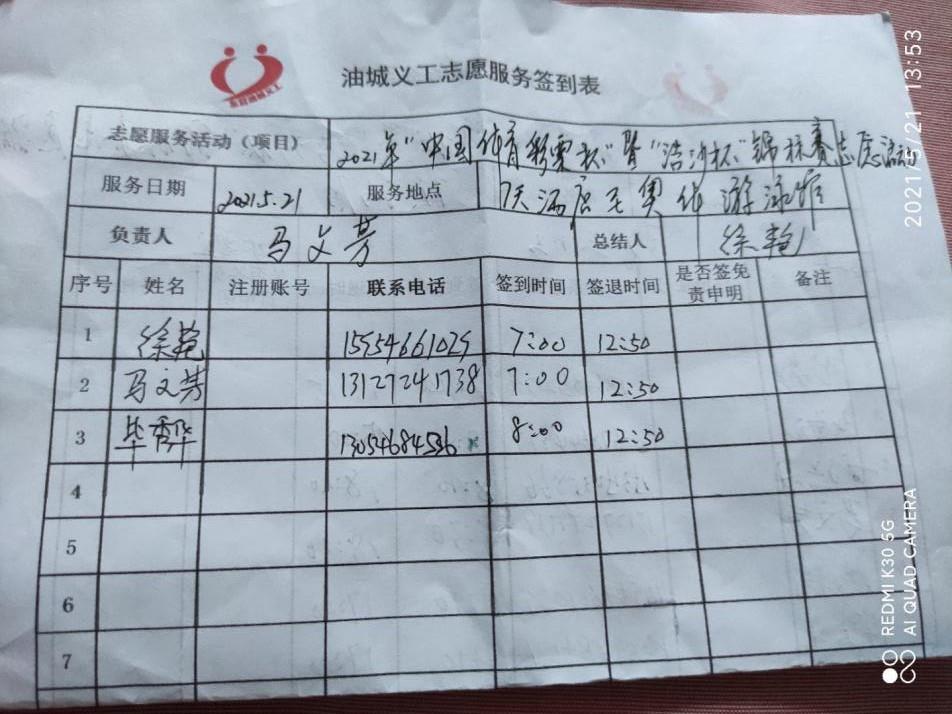 油城义工志愿服务签到表
志愿服务活动（项目） 2021年"中国体育彩票杯"暨"浩沙杯"锦标赛志愿活动
服务日期 2021.5.21 服务地点 游泳馆
负责人 马文芳 总结人 徐艳
序号 姓名 注册账号 联系电话 签到时间 签退时间 是否签免责申明 备注
1 徐艳 15954661029 7:00 12:50
2 马文芳 13127241738 7:00 12:50
3 毕秀华 13054684536 8:00 12:50
4
5
6
7
2021/5/21 13:53
REDMI K30 5G
AI QUAD CAMERA